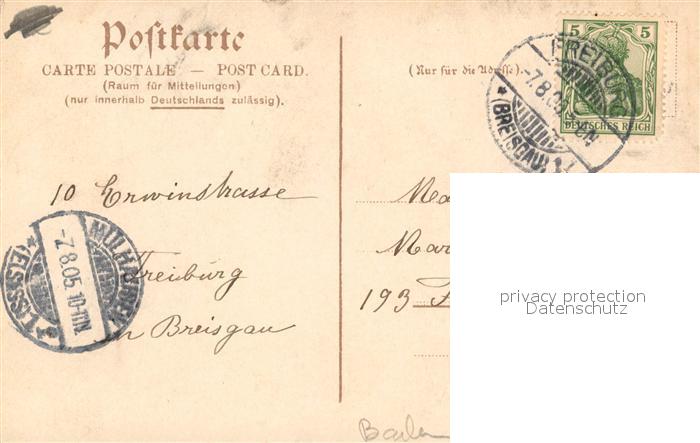 Postkarte
CARTE POSTALE — POST CARD.
(Raum für Mitteilungen)
(nur innerhalb Deutschlands zulässig).
(Nur für die Adresse).
5 5
DEUTSCHES REICH
FREIBURG
-7.8.05
* (BREISGAU)
10 Erwinstrasse
Freiburg
in Breisgau
MÜLHAUSEN
-7.8.05. 10-11N.
(ELSASS)
193
privacy protection
Datenschutz
Baden